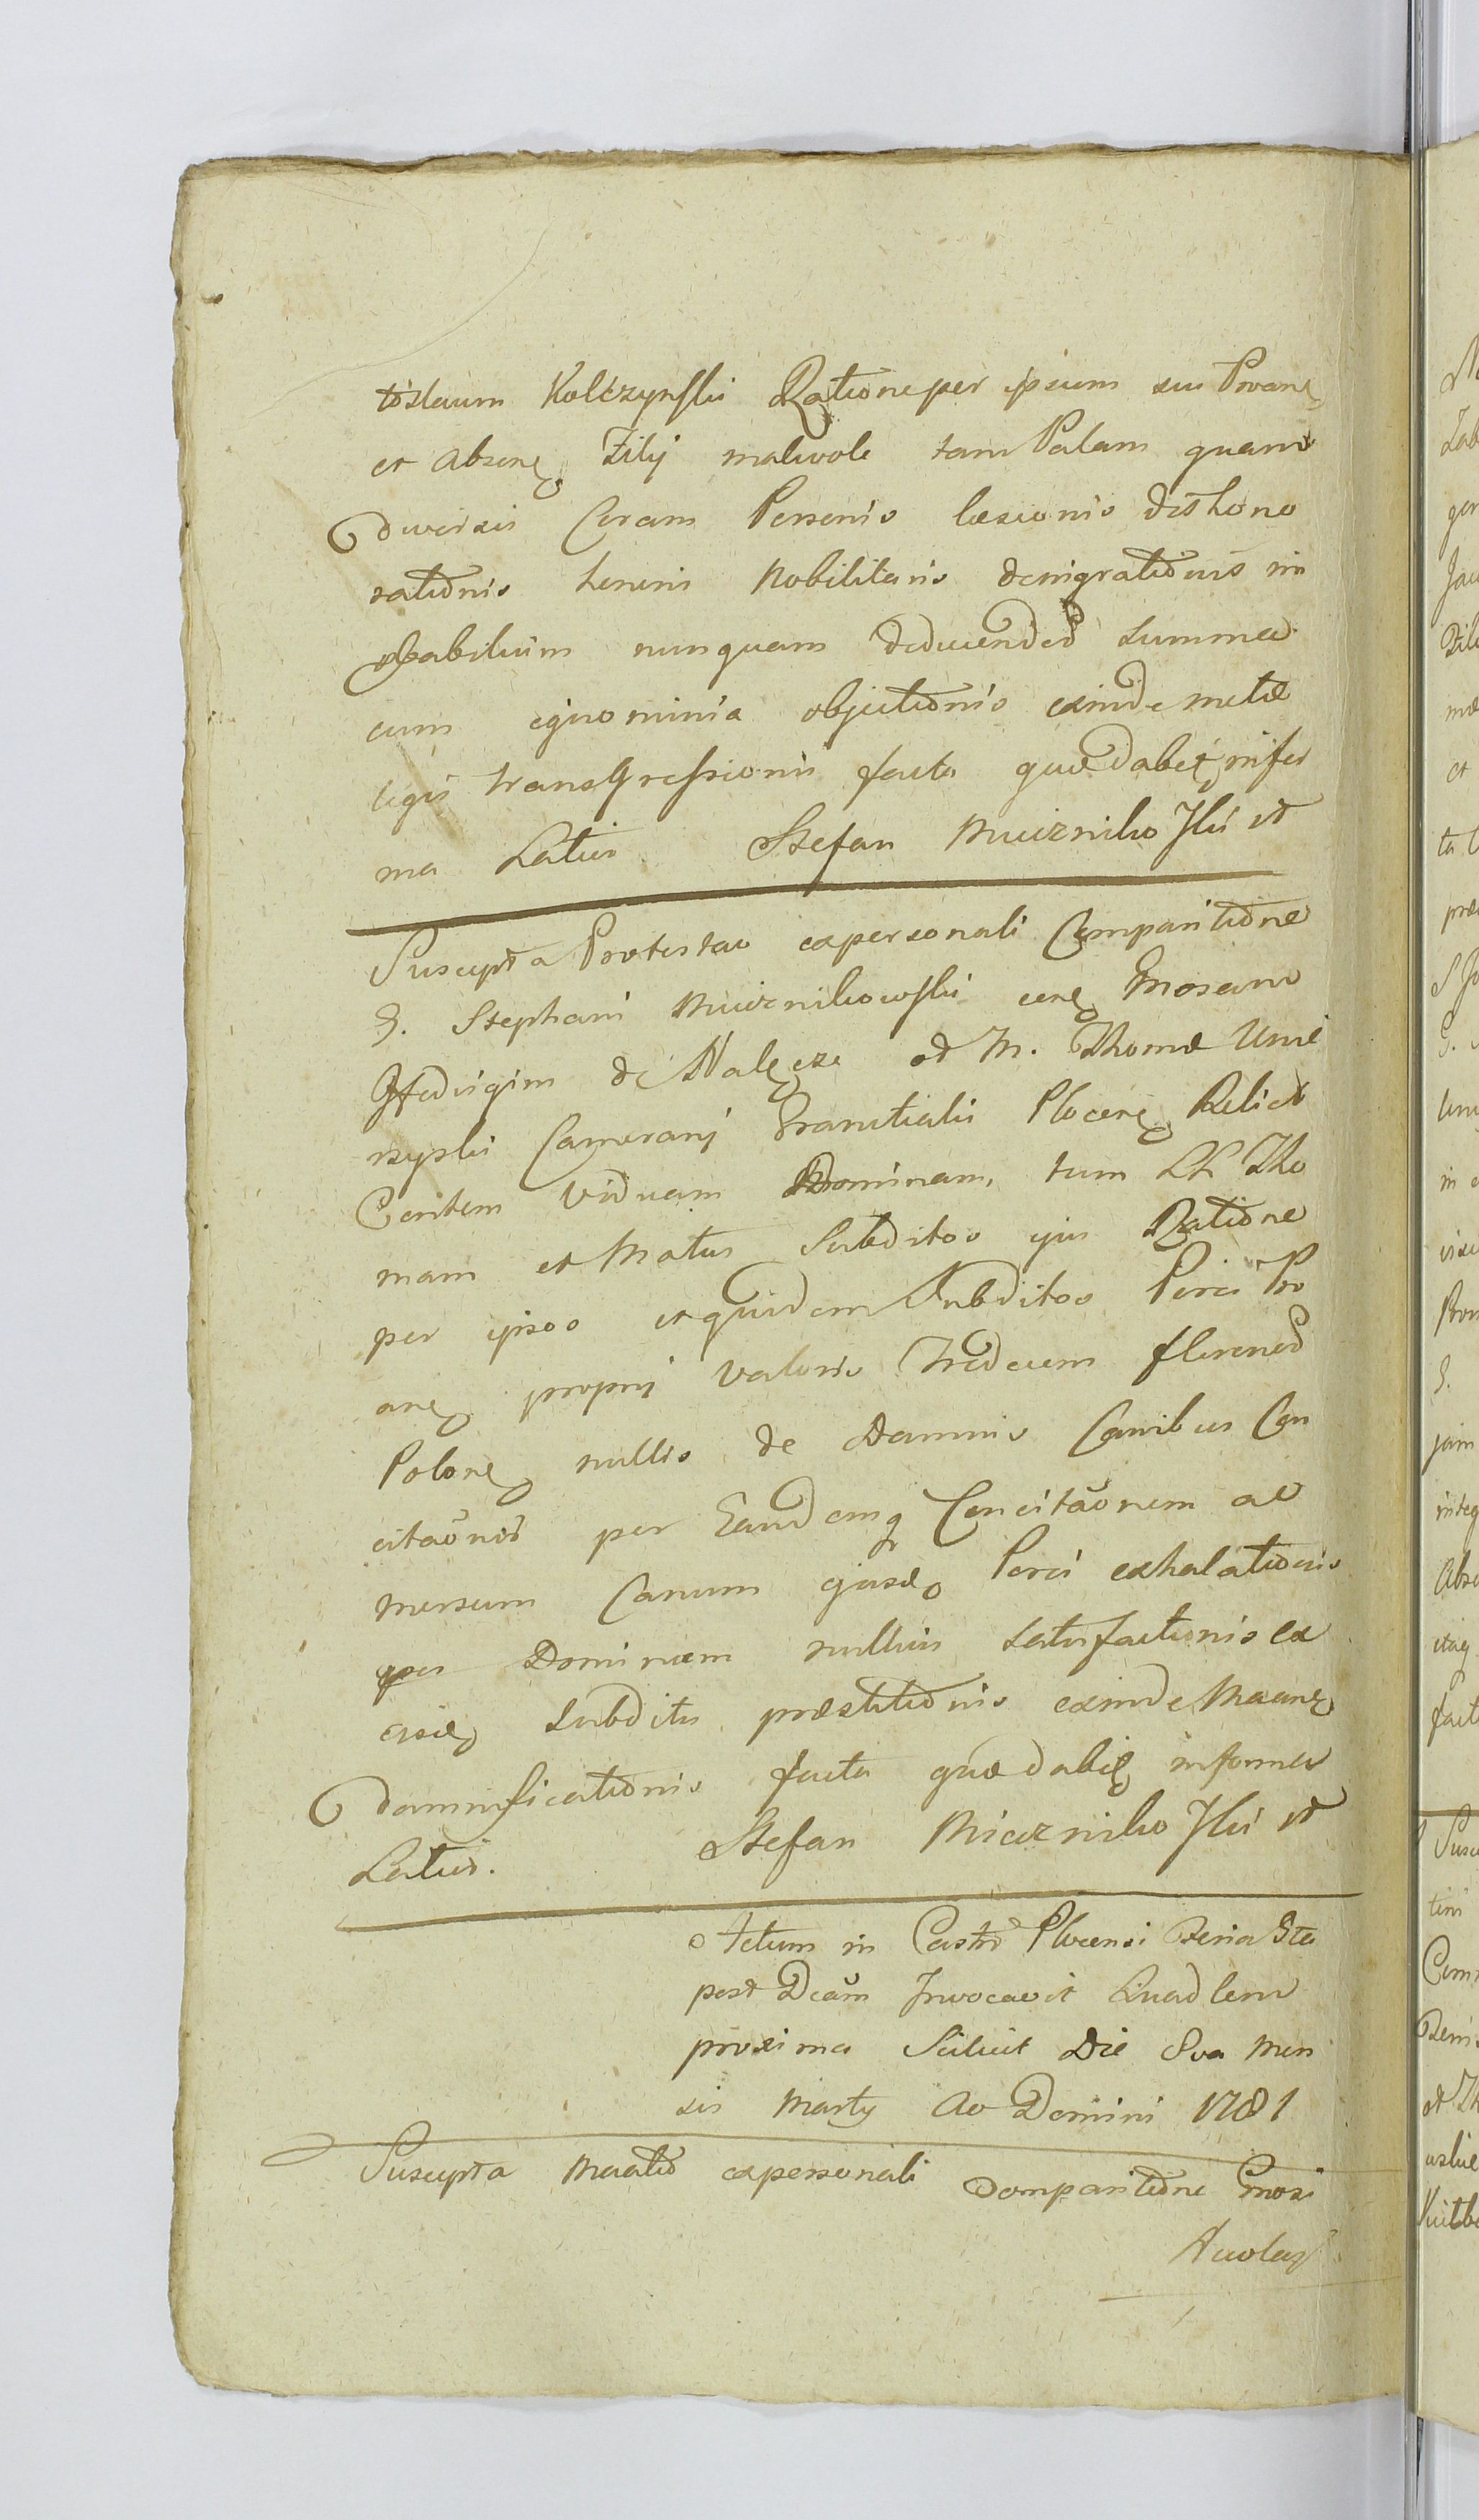 tislaum Kołczynski Ratione per ipsum sui Proane
et Absene Filij malivole tam Palam quam
diversis Coram Personis laesionis dishono
rationis honoris Nobilitaris denigrationis in
Probabilium nunquam deducendo Summa
cum ignominia objectionis exinde metae
legis transgressionis facta quae dabit infor
ma Latius Stefan Miecznikoski vt
Suscepta Protestao ex personali Comparitione
G. Stephani Miecznikowski cone Gnosam
Hedvigim de Nalęcze ad M. Thomae Umie
nyski Camerarij Granitialis Plocene Relict
Contem Viduam Dominam, tum LL Tho
mam et Matus Subditos ejus Ratione
per ipsos et quidem Subditos Porci Pro
ane proprij valoris tredecem florenos
Polone nullis de Damnis Canibus Con
citaonis per Eandemq Concitaonem ac
mersum Canum ejusde Porci exhalationis
per Dominam nullius Satisfactionis ex
eisde Subditis praestitionis exinde Maane
damnificationis facta quae dabit informa
Latius. Stefan Miecznikoski vt
Actum in Castro Plocensi Feria 5ta
post Dcam Invocavit Quadlem
proxima Scilicet Die 8va Men
sis Martij Ao Domini 1781
Suscepta Maatio ex personali Comparitione Gnosi